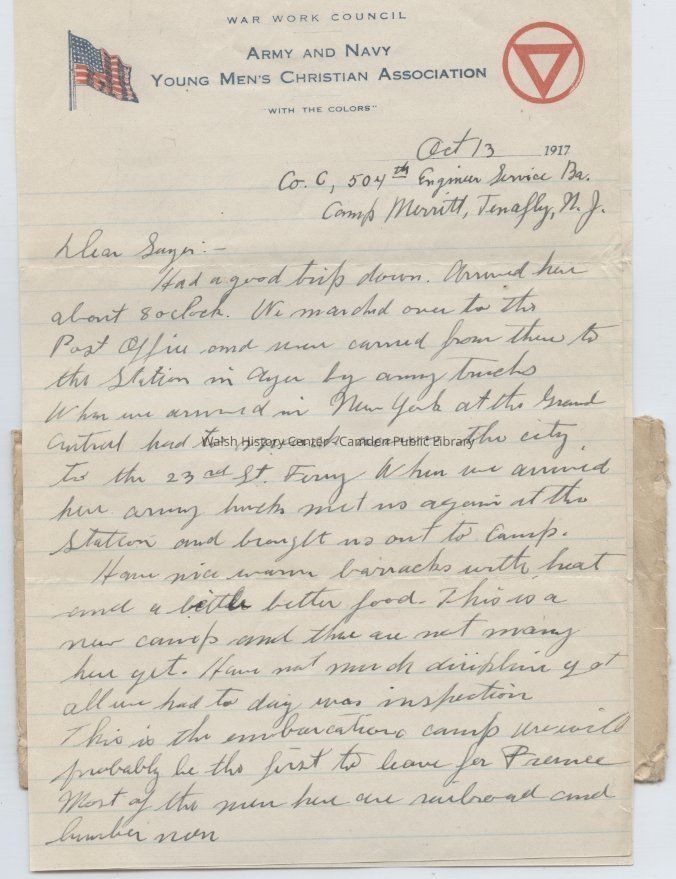 WAR WORK COUNCIL
ARMY AND NAVY
YOUNG MEN'S CHRISTIAN ASSOCIATION
"WITH THE COLORS"
Oct 13 1917
Co. C, 504th Engineer Service Ba.
Camp Merritt, Tenafly, N. J.
Dear :-
Had a good trip down. Arrived here
about 8 oclock. We marched over to the
Post Office and were carried from there to
the Station in Ayer by army trucks
When we arrived in New York at the Grand
Central had to march the city
Walsh History Center - Camden Public Library
to the 23rd St. Ferry When we arrived
here army trucks met us again at the
Station and brought us out to camp.
Have nice warm barracks with heat
and a little better food. This is a
new camp and there are not many
here yet. Have not much discipline yet
all we had to day was inspection
This is the embarcation camp we will
probably be the first to leave for France
Most of the men here are railroad and
lumber men